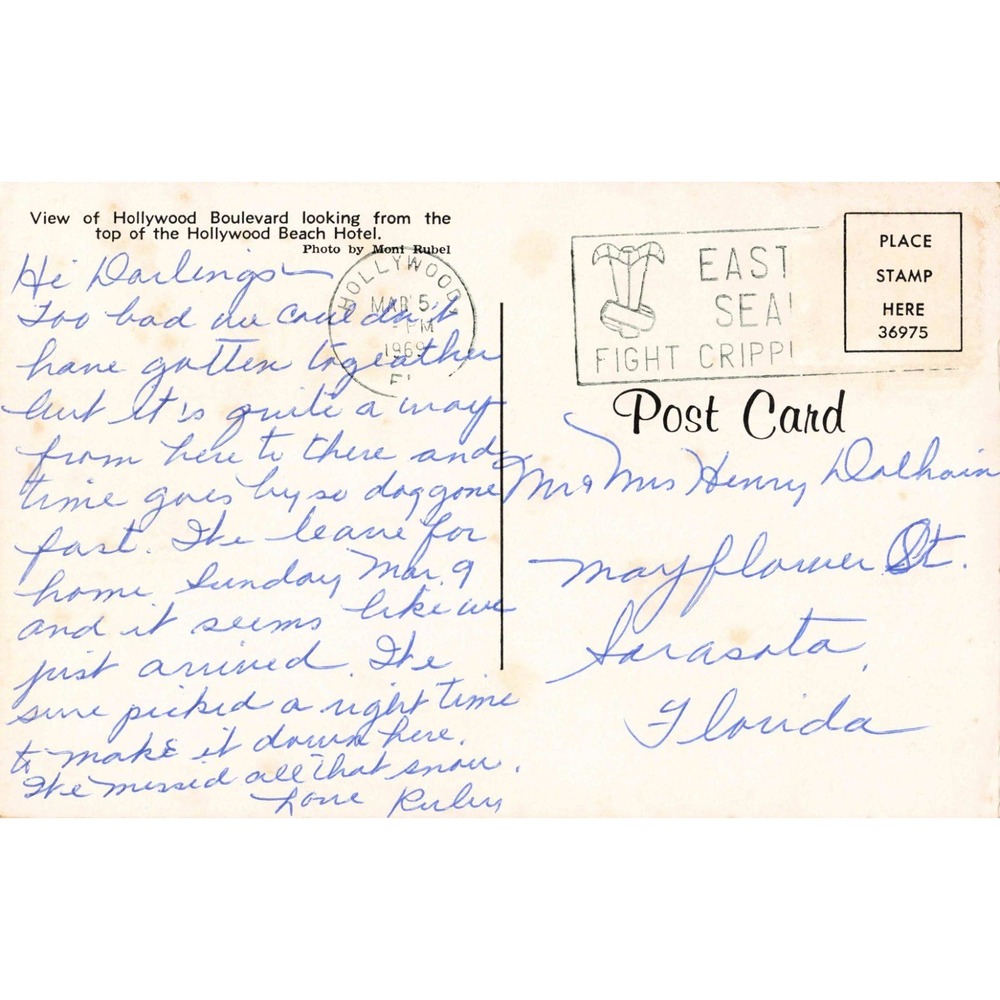 View of Hollywood Boulevard looking from the
top of the Hollywood Beach Hotel.
Photo by Moni Rubel
Hi Darlings
Too bad we couldn't
have gotten togeather
but it's quite a way
from here to there and
time goes by so doggone
fast. We leave for
home Sunday Mar. 9
and it seems like we
just arrived. We
sure picked a right time
to make it down here.
We missed all that snow.
Love
HOLLYWOOD
MAR 5
PM
1969
FL
EAST
SEA
FIGHT CRIPPL
PLACE
STAMP
HERE
36975
Post Card
Mr & Mrs Henry
Mayflower St.
Sarasota,
Florida